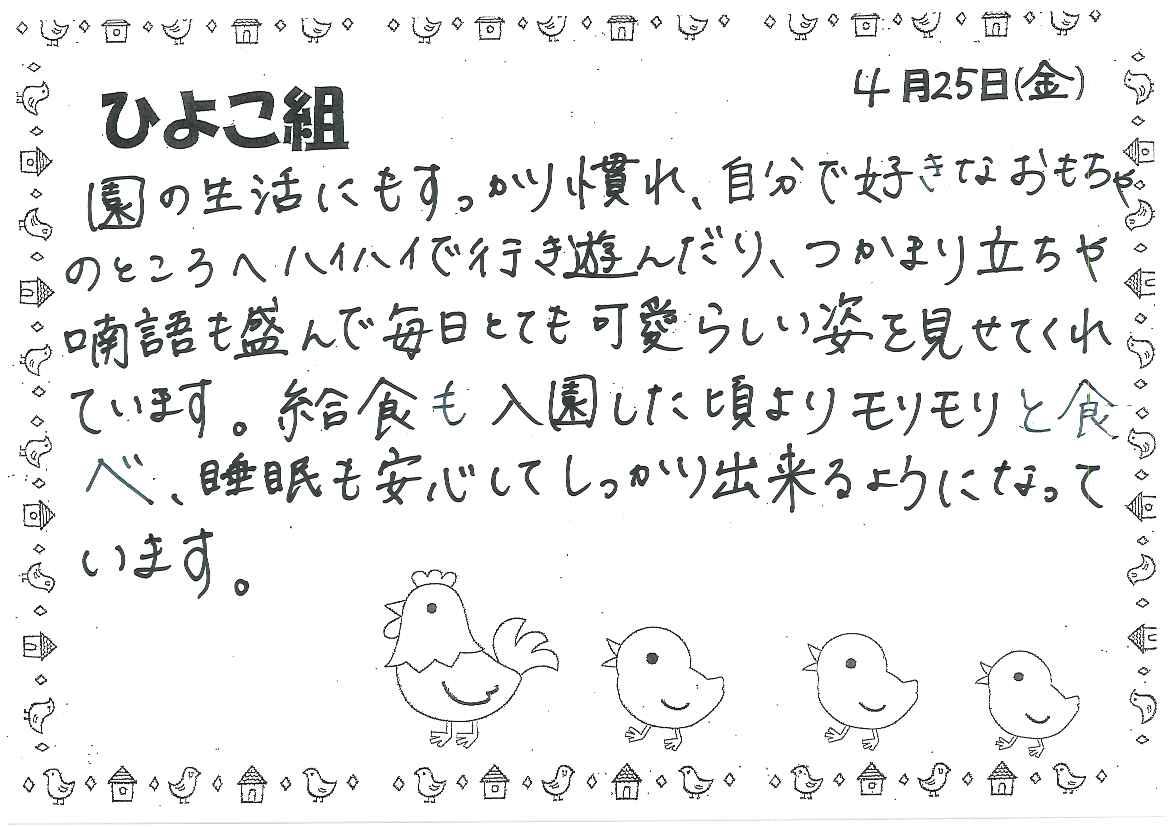 4月25日(金)
ひよこ組
園の生活にもすっかり慣れ、自分で好きなおもちゃ
のところへハイハイで行き遊んだり、つかまり立ちや
喃語も盛んで毎日とても可愛らしい姿を見せてくれ
ています。給食も入園した頃よりモリモリと食
べ、睡眠も安心してしっかり出来るようになって
います。